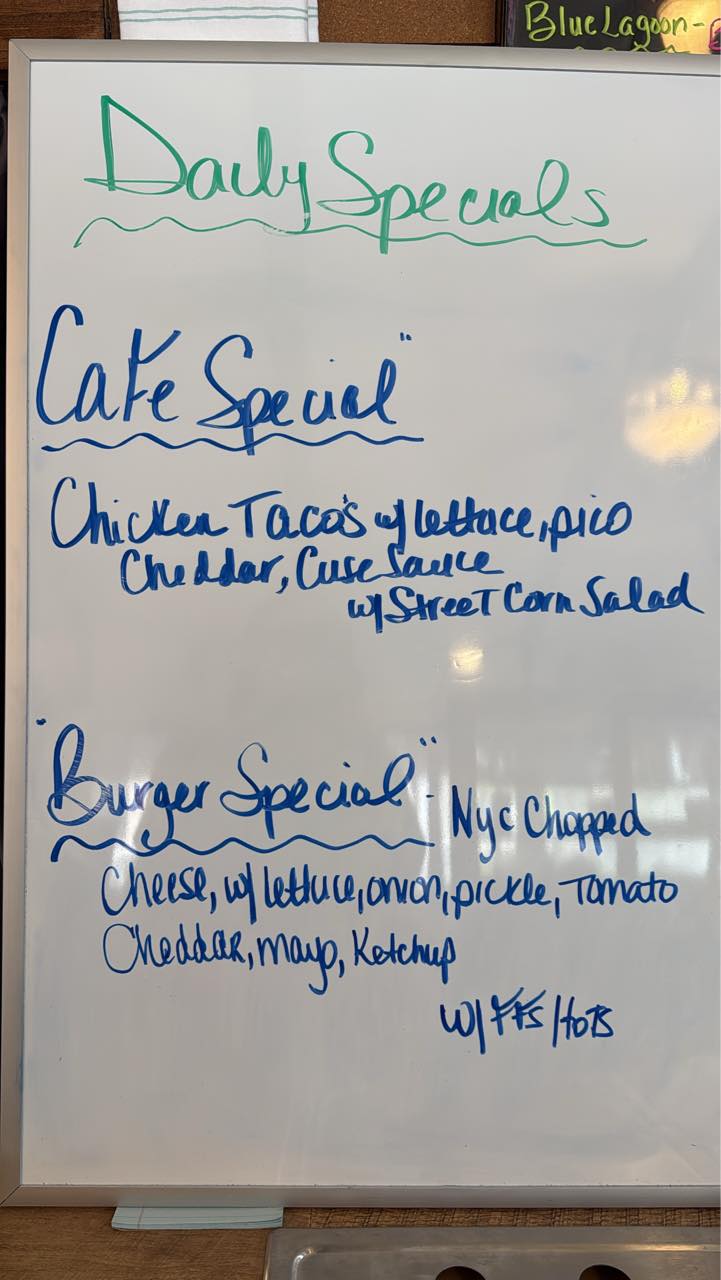 Blue Lagoon-
Daily Specials
Cafe Special"
Chicken Taco's w/ lettuce, pico
Cheddar, Cuse Sauce
w/ Street Corn Salad
"Burger Special" - Nyc Chopped
Cheese, w/ lettuce, onion, pickle, Tomato
Cheddar, mayo, Ketchup
w/ FFS / toTs